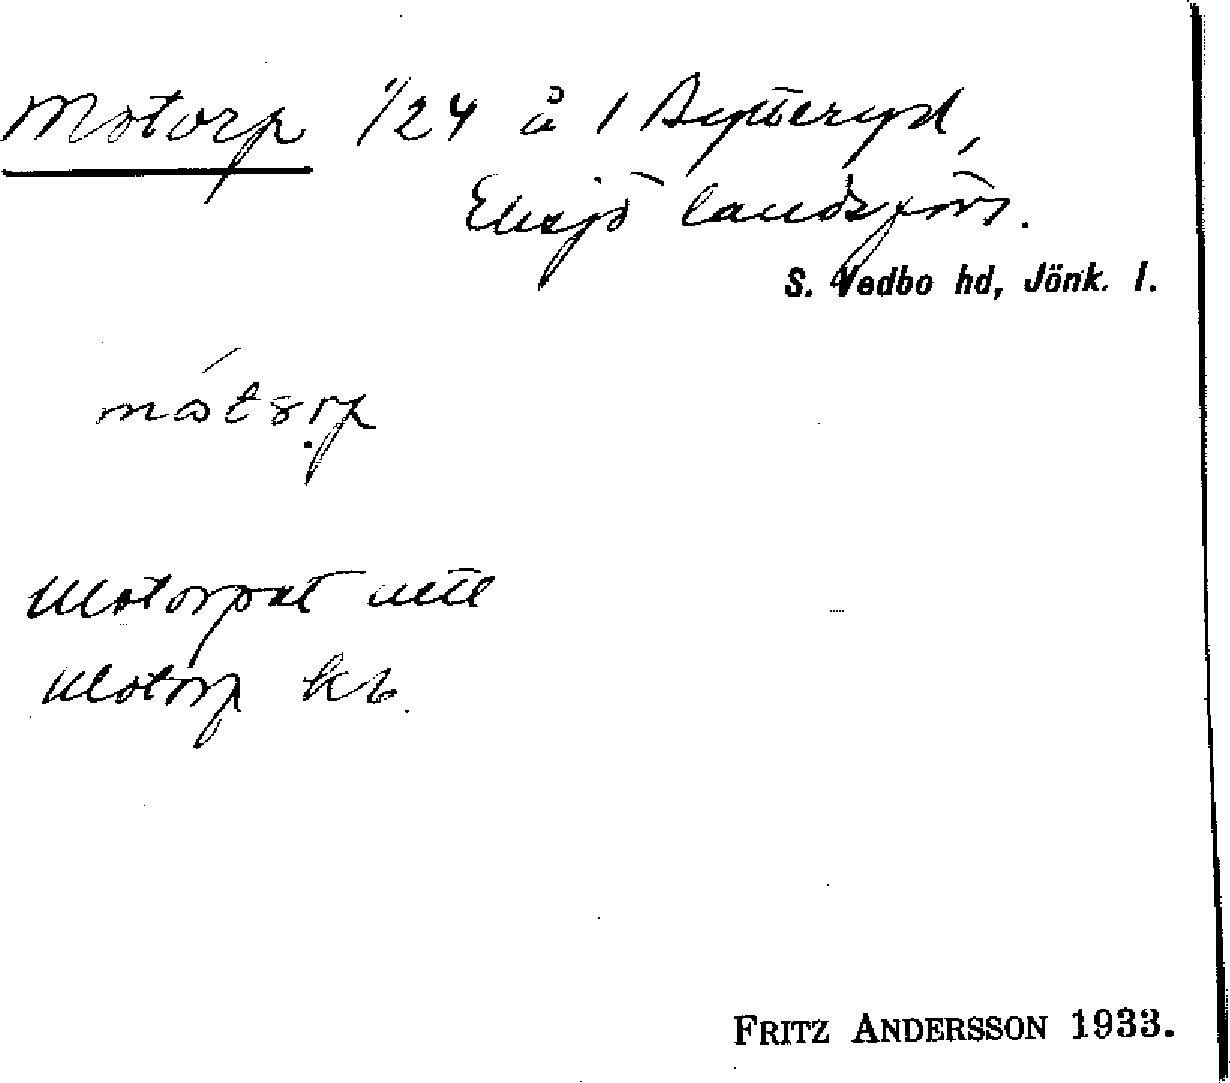 Motorp 1/24 å 1 Bytteryd,
Eksjö landsförs.
S. Vedbo hd, Jönk. l.
Motorpat uttl
Motorp kb.
FRITZ ANDERSSON 1933.